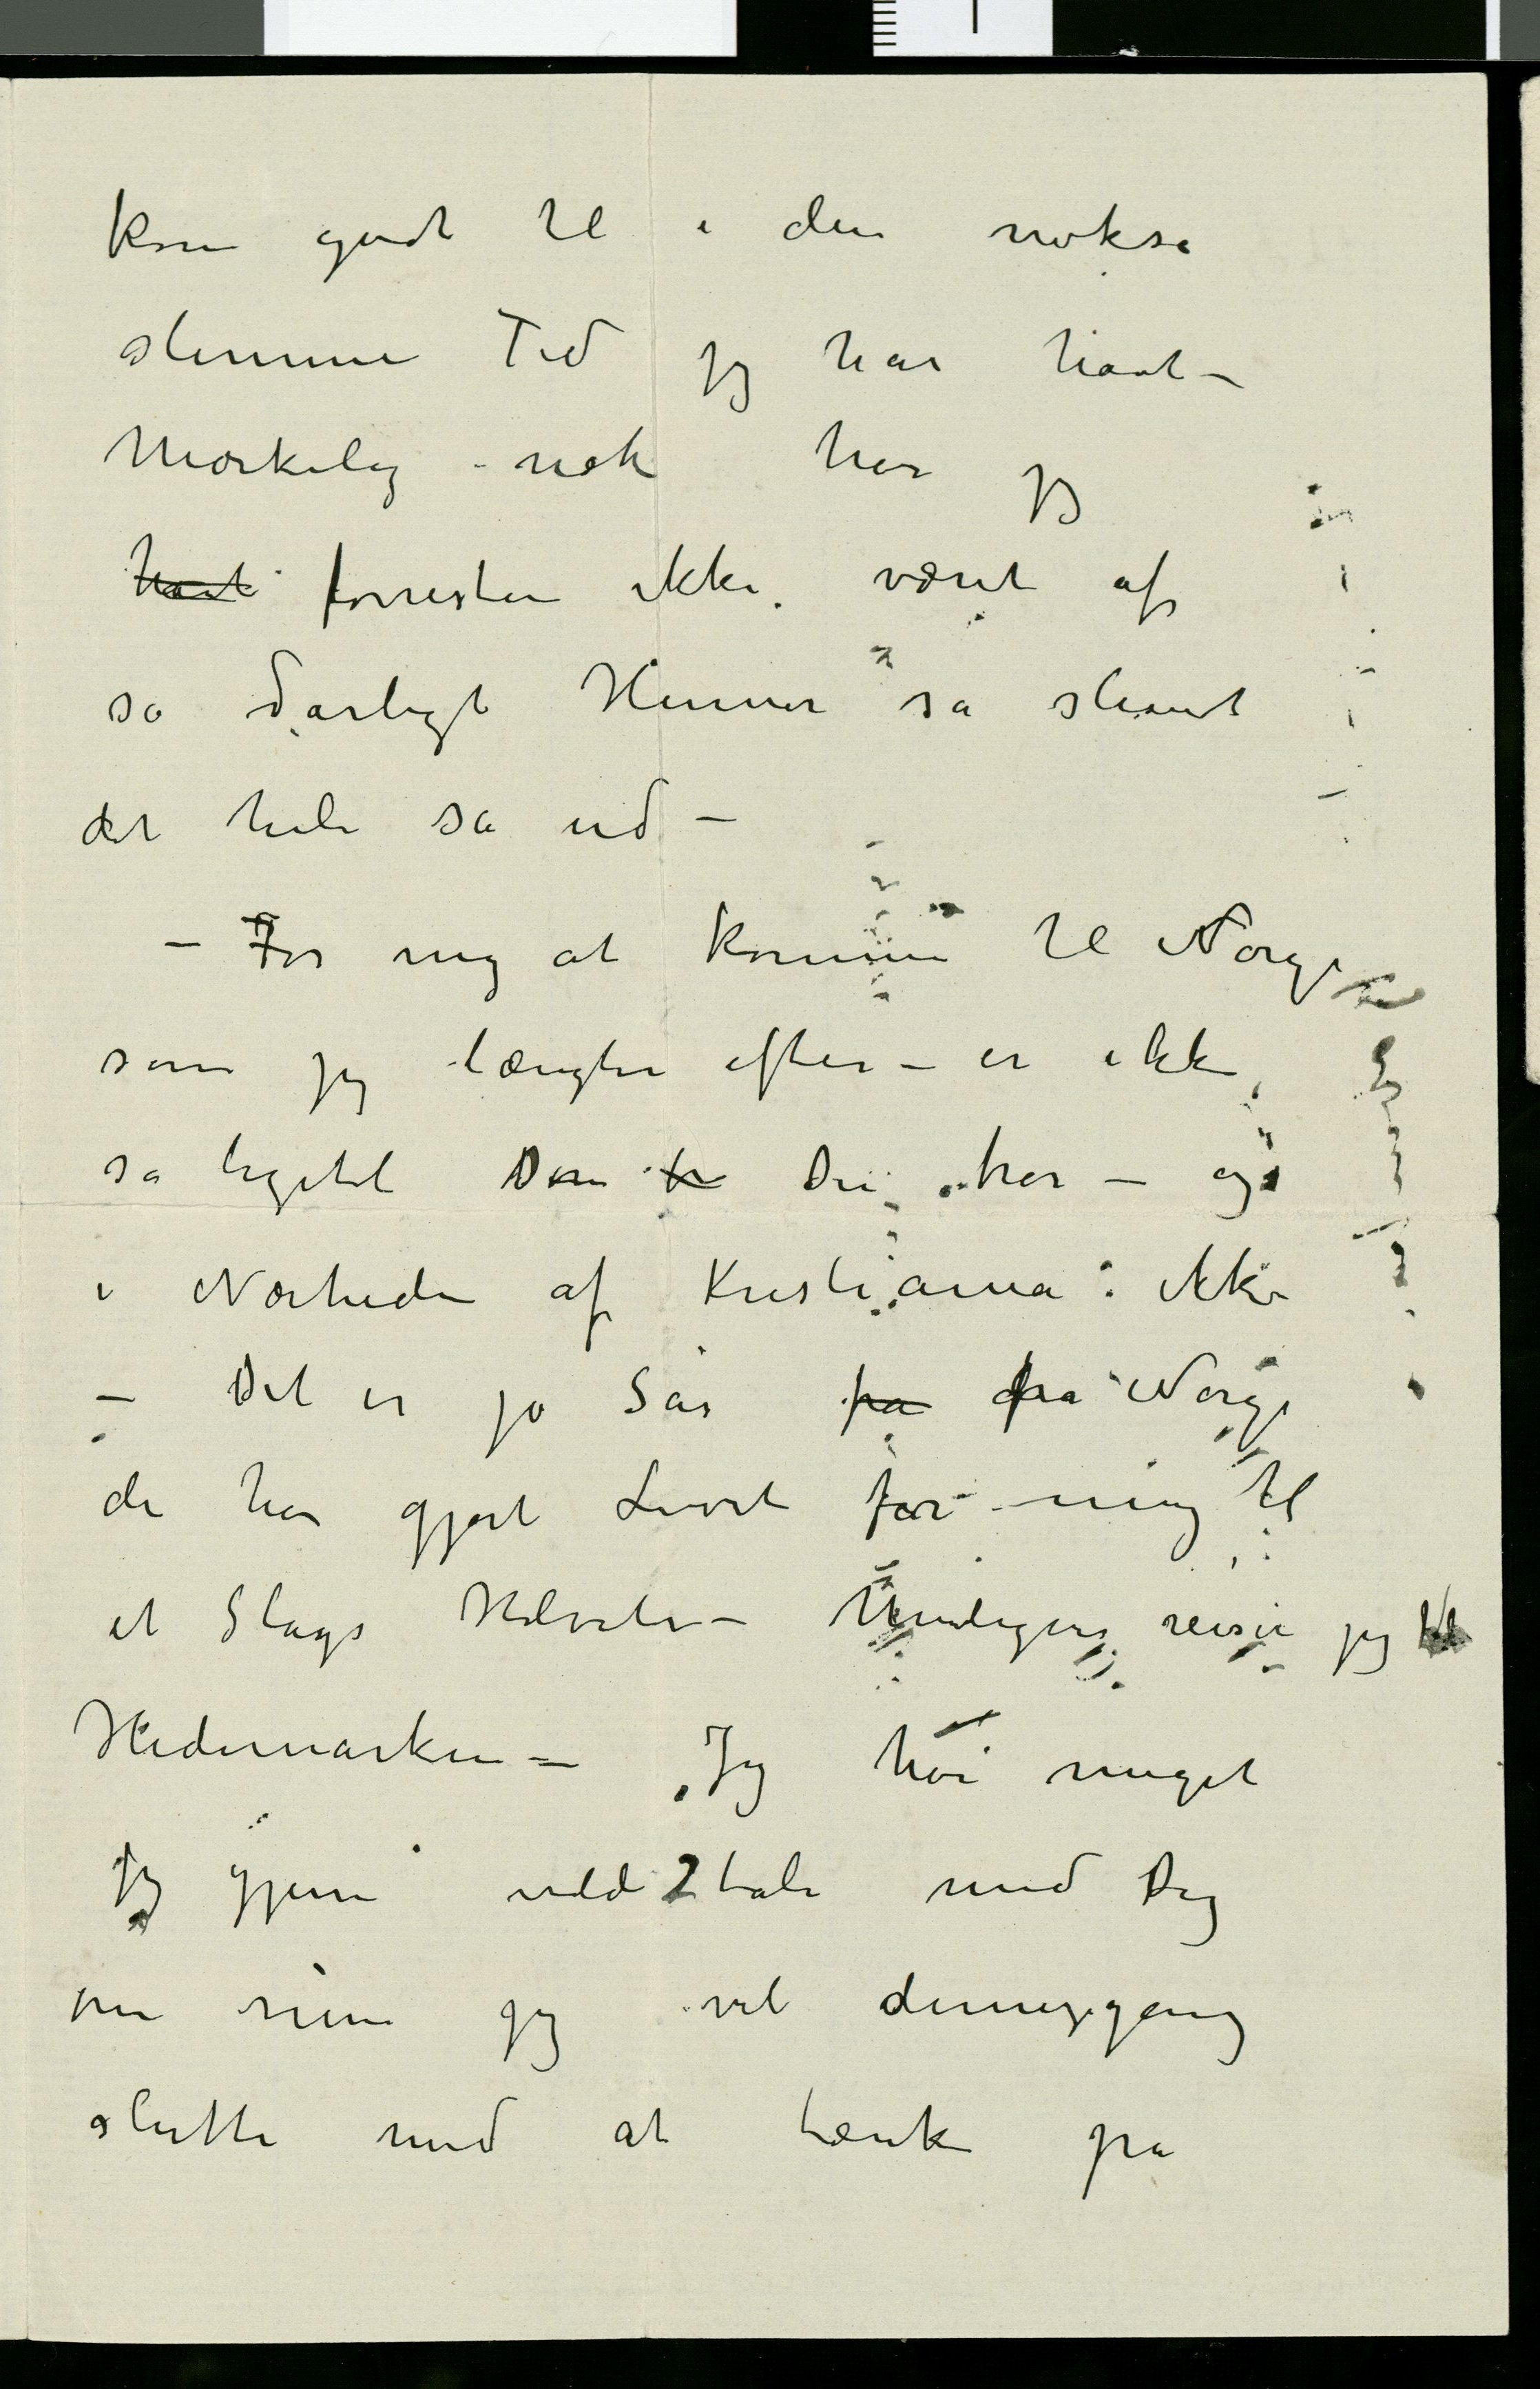 kom godt til i den nokså
slemme Tid jeg har havt –
Mærkelig nok har jeg
havt forresten ikke været af
så dårligt Humør så slemt
det hele så ud –
– For mig at komme til Norge
som jeg længter efter – er ikke
så ligetil Den tr Du tror – og
i Nærheden af Kristiania: ikke
– Det er jo Sår fra fra Norge
der har gjort Livet for mig til
et Slags Helvete – Muligens reiser jeg til
Hedemarken – Jeg har meget
jeg gjerne vilde tale med Dig
om men jeg vil dennegang
slutte med at tænke på